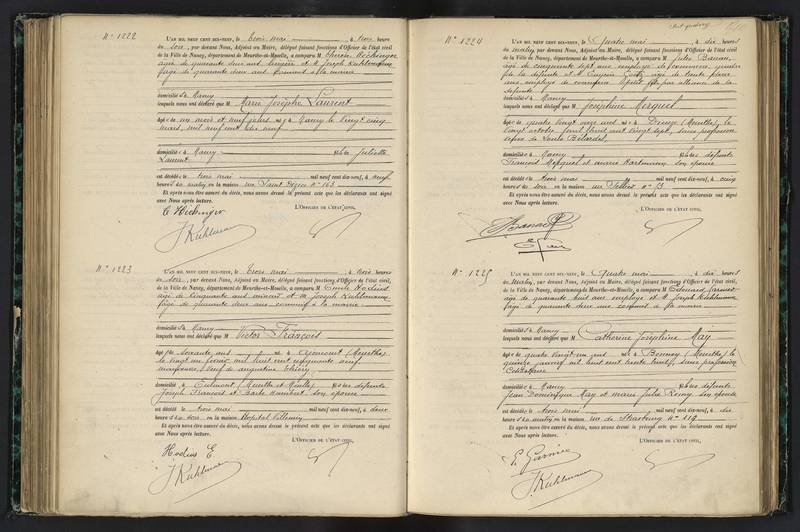 N° 1222
L'AN MIL NEUF CENT DIX-NEUF, le trois mai, à trois heures
du soir, par devant Nous, Adjoint au Maire, délégué faisant fonctions d'Officier de l'état civil
de la Ville de Nancy, département de Meurthe-et-Moselle, a comparu M
âgé de quarante deux ans et M Joseph Kuhlmann
âgé de quarante deux ans à la mairie
domiciliés à Nancy
lesquels nous ont déclaré que M Marie Josèphe Laurent
âgée de un mois et neuf jours née à Nancy le vingt cinq
mars, mil neuf cent dix neuf
domiciliée à Nancy fille de Juliette
Laurent
est décédée le trois mai mil neuf cent dix-neuf, à
heures du matin en la maison rue Saint Dizier N° 163
Et après nous être assuré du décès, nous avons dressé le présent acte que les déclarants ont signé
avec Nous après lecture.
L'OFFICIER DE L'ÉTAT CIVIL,
J. Kuhlmann
N° 1223
L'AN MIL NEUF CENT DIX-NEUF, le trois mai, à trois heures
du soir, par devant Nous, Adjoint au Maire, délégué faisant fonctions d'Officier de l'état civil
de la Ville de Nancy, département de Meurthe-et-Moselle, a comparu M Emile Hodius
âgé de cinquante ans et M Joseph Kuhlmann
âgé de quarante deux ans à la mairie
domiciliés à Nancy
lesquels nous ont déclaré que M Victor François
âgé de soixante ans né à (Meurthe)
le vingt un février mil huit cent cinquante neuf
veuf de Augustine Thiéry
domicilié à Eulmont (Meurthe et Moselle) fils de défunts
Joseph François et Barbe Humbert son épouse
est décédé le trois mai mil neuf cent dix-neuf, à deux
heures du soir en la maison Hôpital Villemin
Et après nous être assuré du décès, nous avons dressé le présent acte que les déclarants ont signé
avec Nous après lecture.
L'OFFICIER DE L'ÉTAT CIVIL,
Hodius E.
J. Kuhlmann
N° 1224
L'AN MIL NEUF CENT DIX-NEUF, le quatre mai, à dix heures
du matin, par devant Nous, Adjoint au Maire, délégué faisant fonctions d'Officier de l'état civil
de la Ville de Nancy, département de Meurthe-et-Moselle, a comparu M Jules
âgé de cinquante sept ans employé de commerce, gendre
de la défunte et M Eugène âgé de trente
ans employé de commerce petit fils par alliance de la
défunte
domiciliés à Nancy
lesquels nous ont déclaré que M Joséphine Morquel
âgée de quatre vingt ans née à Dieuze (Meurthe), le
vingt octobre mil huit cent vingt sept, sans profession
veuve de Louis Bélardel,
domiciliée à Nancy fille de défunts
François Morquel et Marie Hartmann son épouse
est décédée le trois mai mil neuf cent dix-neuf, à cinq
heures du soir en la maison rue Sellier N° 13
Et après nous être assuré du décès, nous avons dressé le présent acte que les déclarants ont signé
avec Nous après lecture.
L'OFFICIER DE L'ÉTAT CIVIL,
N° 1225
L'AN MIL NEUF CENT DIX-NEUF, le quatre mai, à dix heures
du matin, par devant Nous, Adjoint au Maire, délégué faisant fonctions d'Officier de l'état civil
de la Ville de Nancy, département de Meurthe-et-Moselle, a comparu M Edouard Garnier
âgé de quarante huit ans employé et M Joseph Kuhlmann
âgé de quarante deux ans commis à la mairie
domiciliés à Nancy
lesquels nous ont déclaré que M Catherine Joséphine May
âgée de quatre vingt un ans née à (Meurthe) le
quinze avril mil huit cent trente huit, sans profession
Célibataire
domiciliée à Nancy fille de défunts
Jean Dominique May et Marie Julie Remy son épouse
est décédée le trois mai mil neuf cent dix-neuf, à dix
heures du matin en la maison rue de Strasbourg N° 119
Et après nous être assuré du décès, nous avons dressé le présent acte que les déclarants ont signé
avec Nous après lecture.
L'OFFICIER DE L'ÉTAT CIVIL,
E. Garnier
J. Kuhlmann